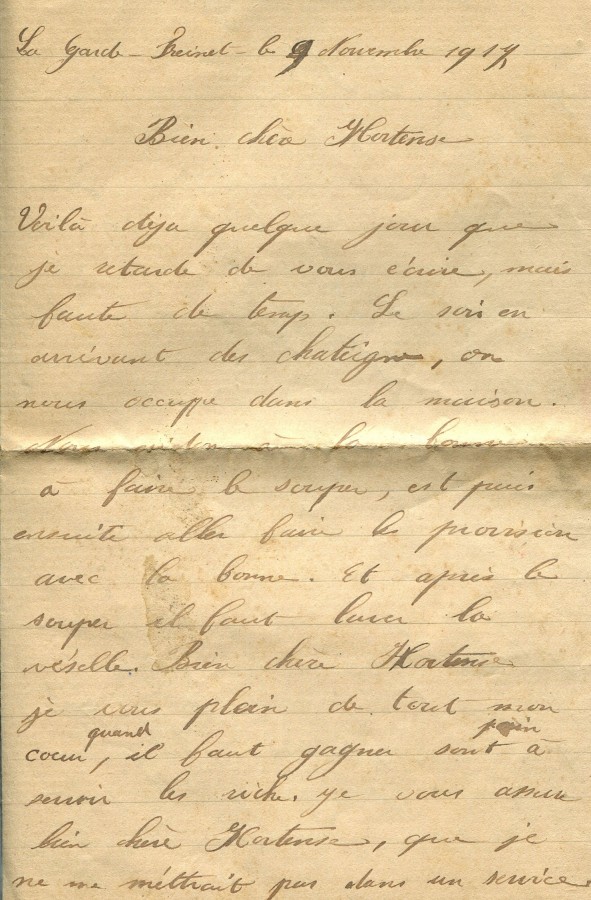 La Garde-Freinet - le 9 Novembre 1917
Bien chère Hortense
Voilà déja quelque jour que
je retarde de vous écrire, mais
faute de temp. Le soir en
arrivant des chateigne, on
nous occupe dans la maison.
Nous aidon à la bonne
à faire le souper, est puis
ensuite aller faire les provision
avec la bonne. Et après le
souper il faut laver la
véselle. Bien chère Hortense
je vous plain de tout mon
coeur, quand il faut gagner sont pain à
servoir les riche. Je vous assure
bien chère Hortense, que je
ne me méttrait pas dans un service.